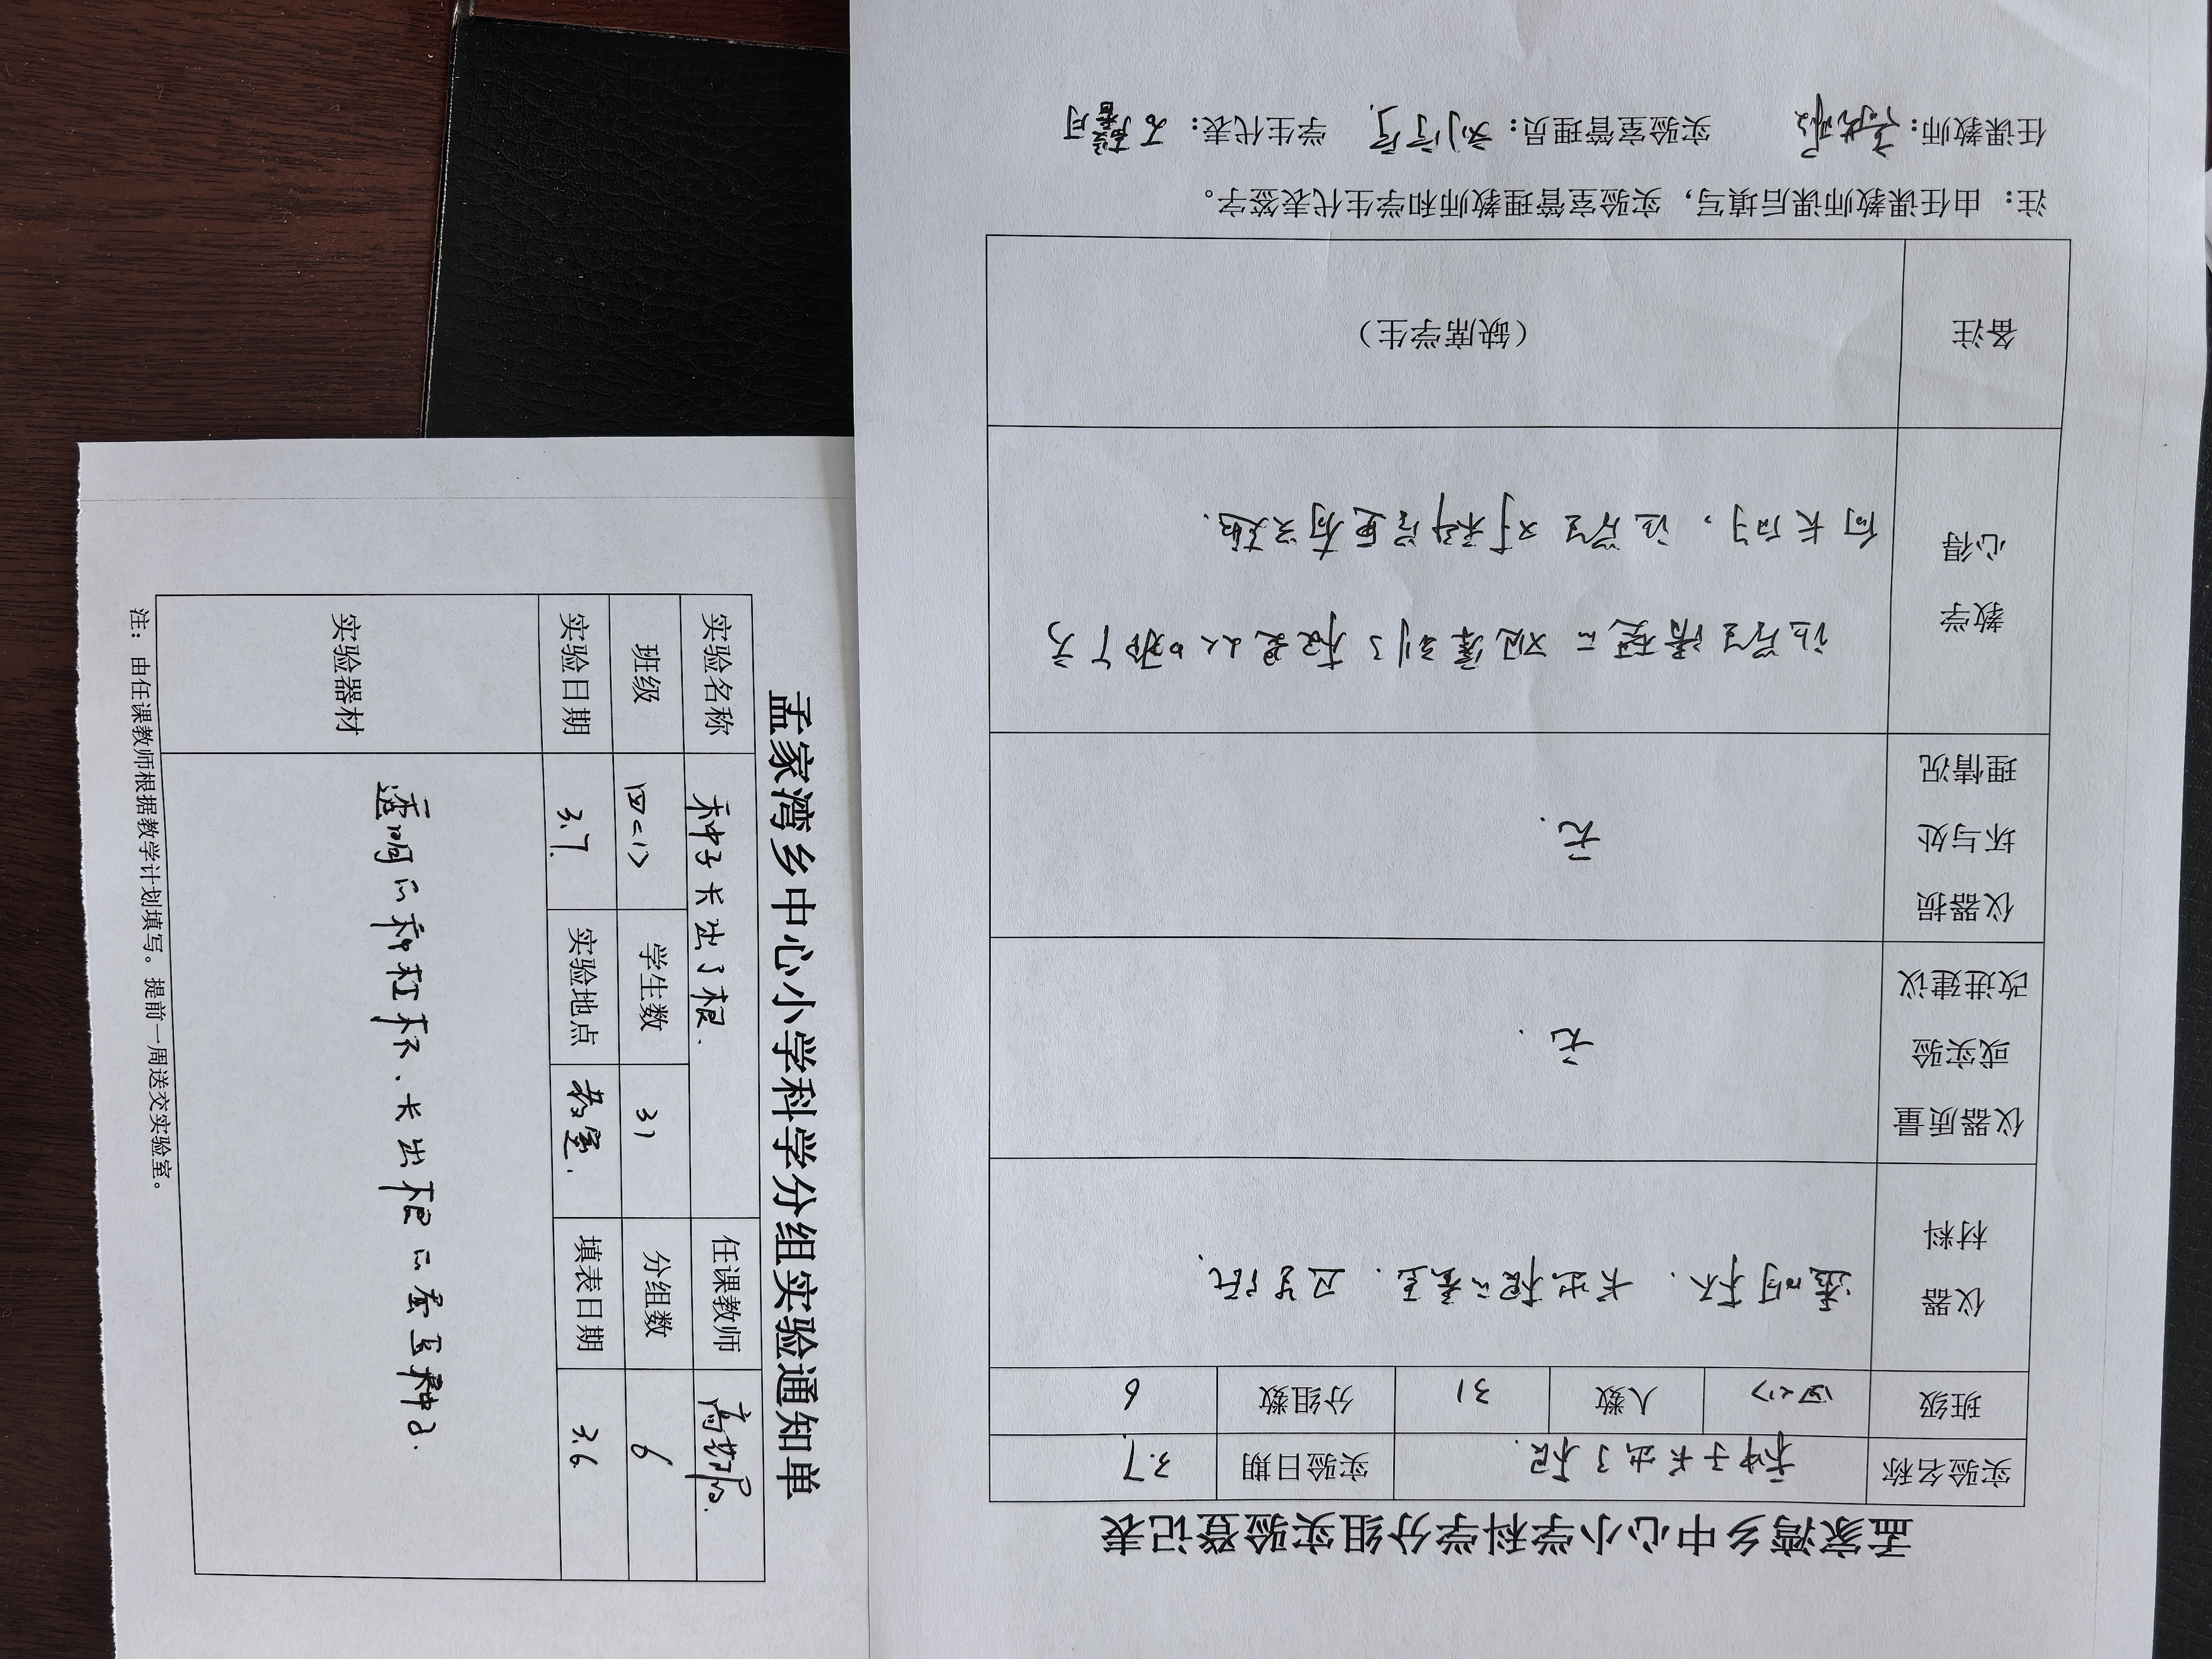 孟家湾乡中心小学科学分组实验通知单
实验名称 种子长出了根. 任课教师
班级 四〈1〉 学生数 31 分组数 6
实验日期 3.7. 实验地点 教室. 填表日期 3.6
实验器材 透明的种植杯、长出根的蚕豆种子.
注：由任课教师根据教学计划填写。提前一周送交实验室。
孟家湾乡中心小学科学分组实验登记表
实验名称 种子长出了根. 实验日期 3.7
班级 四〈1〉 人数 31 分组数 6
仪器
材料
透明杯. 长出根的蚕豆. 卫生纸.
仪器质量
或实验
改进建议
无.
仪器损
坏与处
理情况
无.
教学
心得
让学生清楚的观察到了根是从哪个方
向长的, 让学生对科学更有兴趣.
备注
（缺席学生）
注：由任课教师课后填写，实验室管理教师和学生代表签字。
任课教师： 实验室管理员： 学生代表：